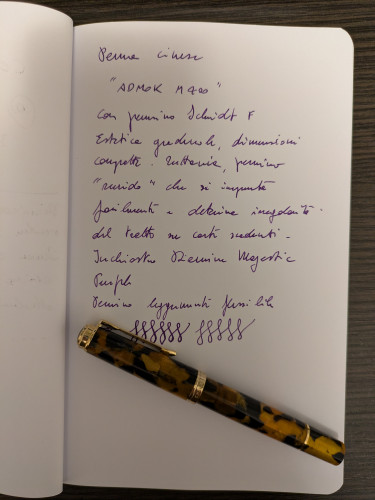 Penna cinese
"ADMOK M800"
con pennino Schmidt F
Estetica gradevole, dimensioni
compatte. Tuttavia, pennino
"ruvido" che si impunta
facilmente e determina irregolarità
del tratto su carte scadenti.
Inchiostro Diamine Majestic
Purple
Pennino leggermente flessibile